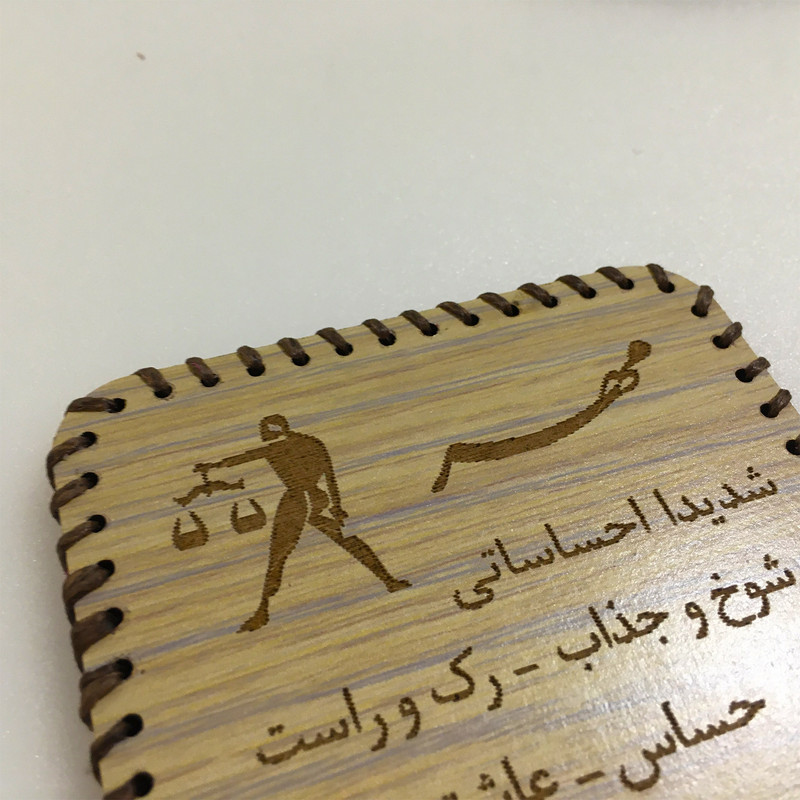 مهر
شدیدا احساساتی
شوخ و جذاب - رک و راست
حساس -